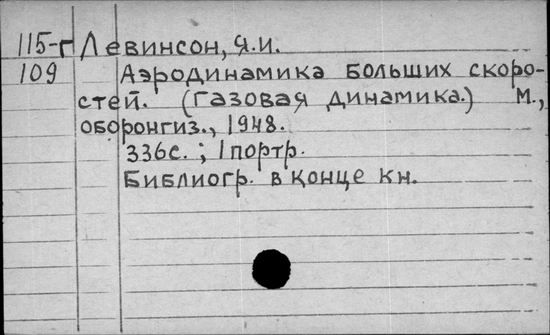 115-г Левинсон, Я.И.
109 Аэродинамика больших скоро-
стей. (Газовая динамика.) М.,
оборонгиз., 1948.
336с. ; 1 портр.
Библиогр. в конце кн.